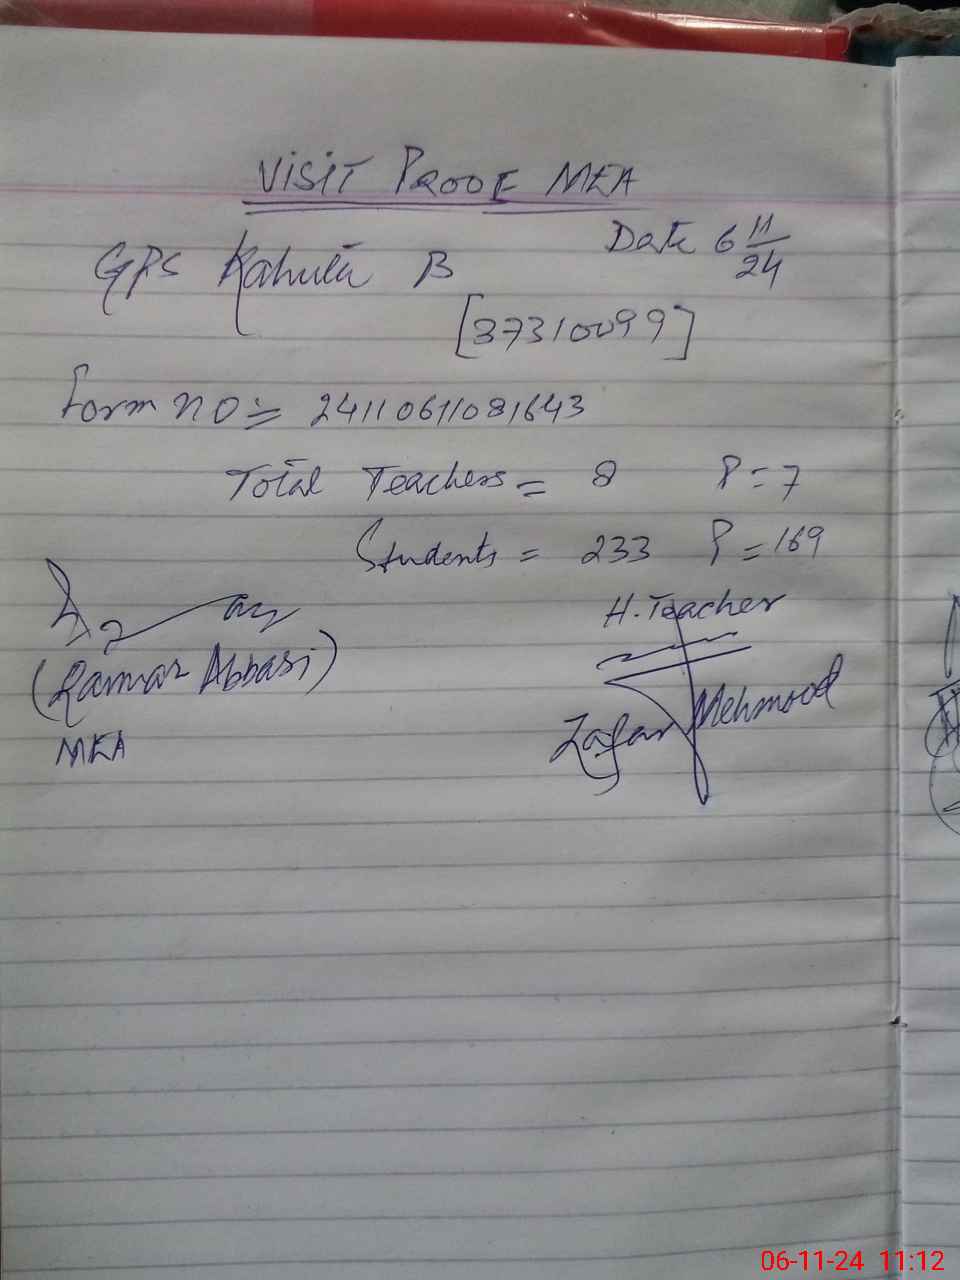 VISIT PROOF MEA
Date 6 11/24
GPS Kahuti B
[37310099]
Form no = 24110611081643
Total Teachers = 8 P = 7
Students = 233 P = 169
H. Teacher
(Qamar Abbasi)
Zafar Mehmood
MEA
06-11-24 11:12